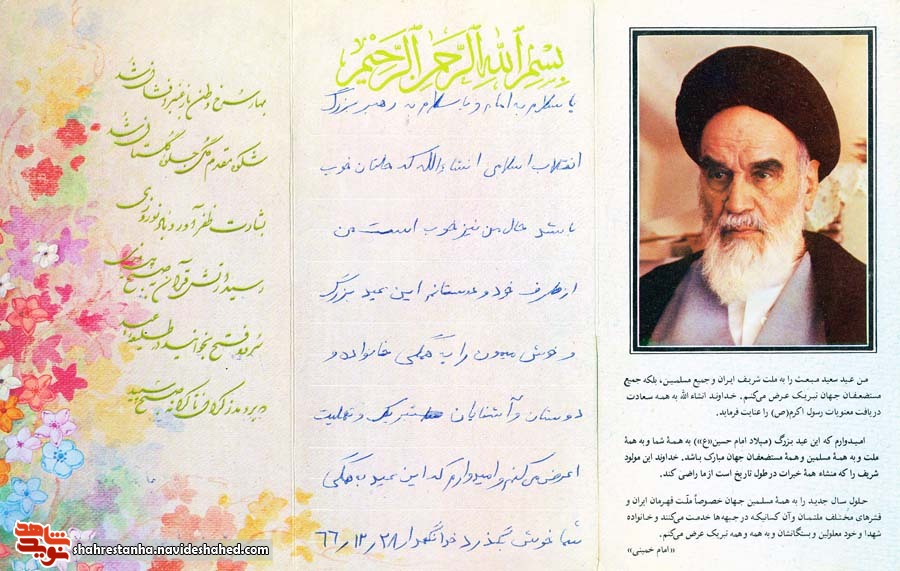 بِسْمِ ٱللَّهِ ٱلرَّحْمَٰنِ ٱلرَّحِيمِ
با سلام به امام و با سلام به رهبر بزرگ
انقلاب اسلامی انشاءالله که حالتان خوب
باشد حال من نیز خوب است من
از طرف خود و دوستانم این عید بزرگ
و خوش میمون را به همگی خانواده و
دوستان و آشنایان تبریک و تهنیت
عرض می کنم و امیدوارم که این عید به همگی
شما خوش بگذرد خدانگهدار ۶۶/۱۲/۲۸
من عید سعید مبعث را به ملت شریف ایران و جمیع مسلمین، بلکه جمیع
مستضعفان جهان تبریک عرض می‌کنم. خداوند انشاء الله به همه سعادت
دریافت معنویات رسول اکرم(ص) را عنایت فرماید.
امیدوارم که این عید بزرگ (میلاد امام حسین«ع») به همهٔ شما و به همهٔ
ملت و به همهٔ مسلمین و همهٔ مستضعفان جهان مبارک باشد. خداوند این مولود
شریف را که منشاء همهٔ خیرات در طول تاریخ است از ما راضی کند.
حلول سال جدید را به همهٔ مسلمین جهان خصوصاً ملّت قهرمان ایران و
قشرهای مختلف ملتمان و آن کسانیکه در جبهه‌ها خدمت می‌کنند و خانواده
شهدا و خود معلولین و بستگانشان و به همه و همه تبریک عرض می‌کنم.
«امام خمینی»
بهار سرخ وطن باز
شکوه مقدم گل جلوهٔ گلستان شد
بشارت ظفر آورد باد نوروزی
رسید دانش قرآن صبح
سرود فتح بخوانید در طلیعه
صبح
نوید شاهد
shahrestanha.navideshahed.com